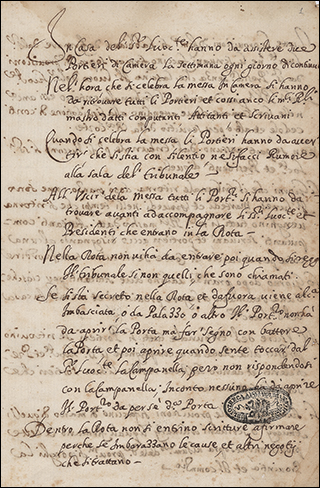 In Casa del Sr. Luoc.te hanno da assistere due
Portieri di Camera la settimana ogni giorno di continuo
Nell'hora che si celebra la messa In Camera si hanno
da ritrovare tutti li Portieri et cossì anco li
mastri datti computanti Attuanti et Scrivani
Quando si celebra la messa li Portieri hanno da
che si stia con silentio ne si facci Rumore
alla sala del Tribunale
All' della Messa tutti li Port.ri si hanno da
trovare avanti ad accompagnare li S.ri Luoc.te et
Presidenti che entrano in la Rota
Nella Rota non vi hà da entrare poi quando si
Il tribunale si non quelli che sono chiamati
Se si stà secreto nella Rota et da fuora viene alc.a
Imbasciata ò da Palazzo ò altro Il Port.ro non hà
da aprir la Porta mà far segno con battere
la Porta et poi aprire quando sente toccar dal
S.r Luoc.te la Campanella, però non rispondendosi
con la Campanella Inconto nessuno hà da aprire
Il Port.ro da per sè d.a Porta
Dentro la Rota non si entrino scritture a firmare
perche se Imbarazzano le cause et altri negotij
che si trattano